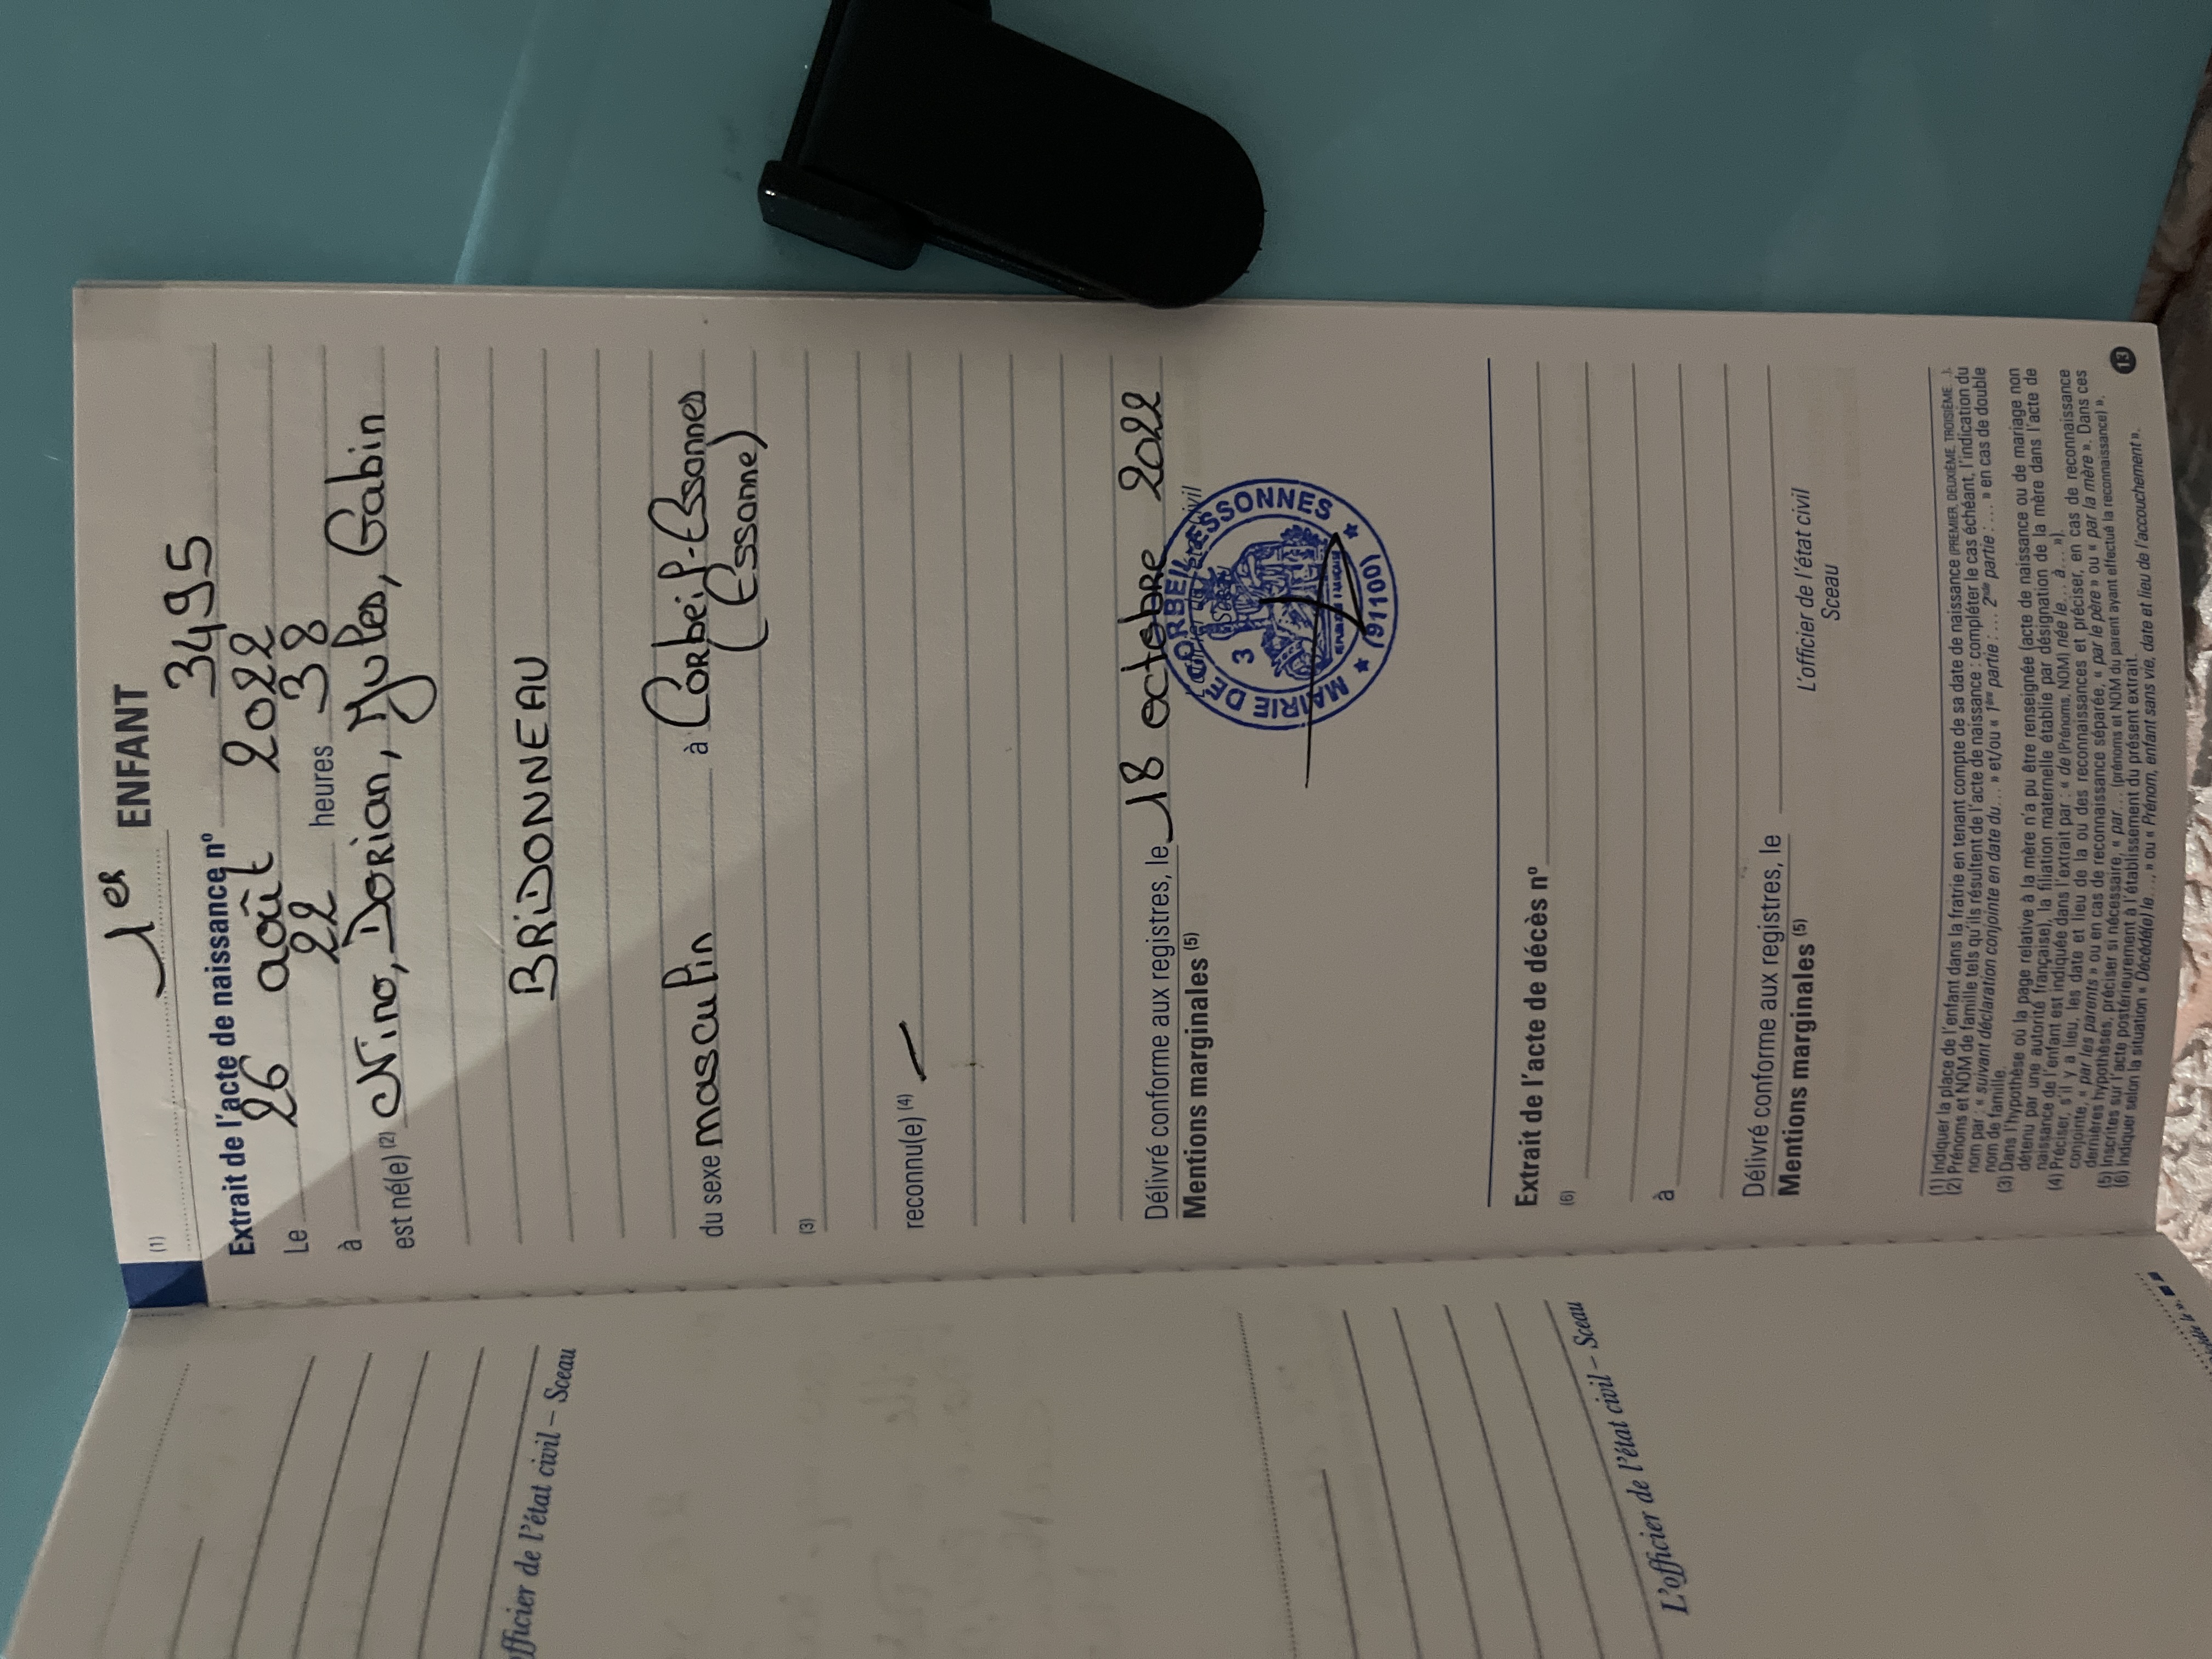 1er ENFANT
(1)
Extrait de l'acte de naissance nº 3495
Le 26 août 2022
à 22 heures 38
est né(e) (2) Nino, Dorian, Jules, Gabin
BRiDONNEAU
du sexe masculin à Corbeil-Essonnes
(Essonne)
(3)
reconnu(e) (4) —
Délivré conforme aux registres, le 18 octobre 2022
Mentions marginales (5)
MAIRIE DE CORBEIL-ESSONNES
3
(91100)
Extrait de l'acte de décès nº
(6)
à
Délivré conforme aux registres, le
Mentions marginales (5)
L'officier de l'état civil
Sceau
(1) Indiquer la place de l'enfant dans la fratrie en tenant compte de sa date de naissance (PREMIER, DEUXIÈME, TROISIÈME ...).
(2) Prénoms et NOM de famille tels qu'ils résultent de l'acte de naissance : compléter le cas échéant, l'indication du
nom par : « suivant déclaration conjointe en date du... » et/ou « 1ère partie : ... 2nde partie : ... » en cas de double
nom de famille.
(3) Dans l'hypothèse où la page relative à la mère n'a pu être renseignée (acte de naissance ou de mariage non
détenu par une autorité française), la filiation maternelle établie par désignation de la mère dans l'acte de
naissance de l'enfant est indiquée dans l'extrait par : « de (Prénoms, NOM) née le... à... »).
(4) Préciser, s'il y a lieu, les date et lieu de la ou des reconnaissances et préciser, en cas de reconnaissance
conjointe, « par les parents » ou en cas de reconnaissance séparée, « par le père » ou « par la mère ». Dans ces
dernières hypothèses, préciser si nécessaire, « par... (prénoms et NOM du parent ayant effectué la reconnaissance) ».
(5) Inscrites sur l'acte postérieurement à l'établissement du présent extrait.
(6) Indiquer selon la situation « Décédé(e) le..., » ou « Prénom, enfant sans vie, date et lieu de l'accouchement ».
13
officier de l'état civil – Sceau
L'officier de l'état civil – Sceau